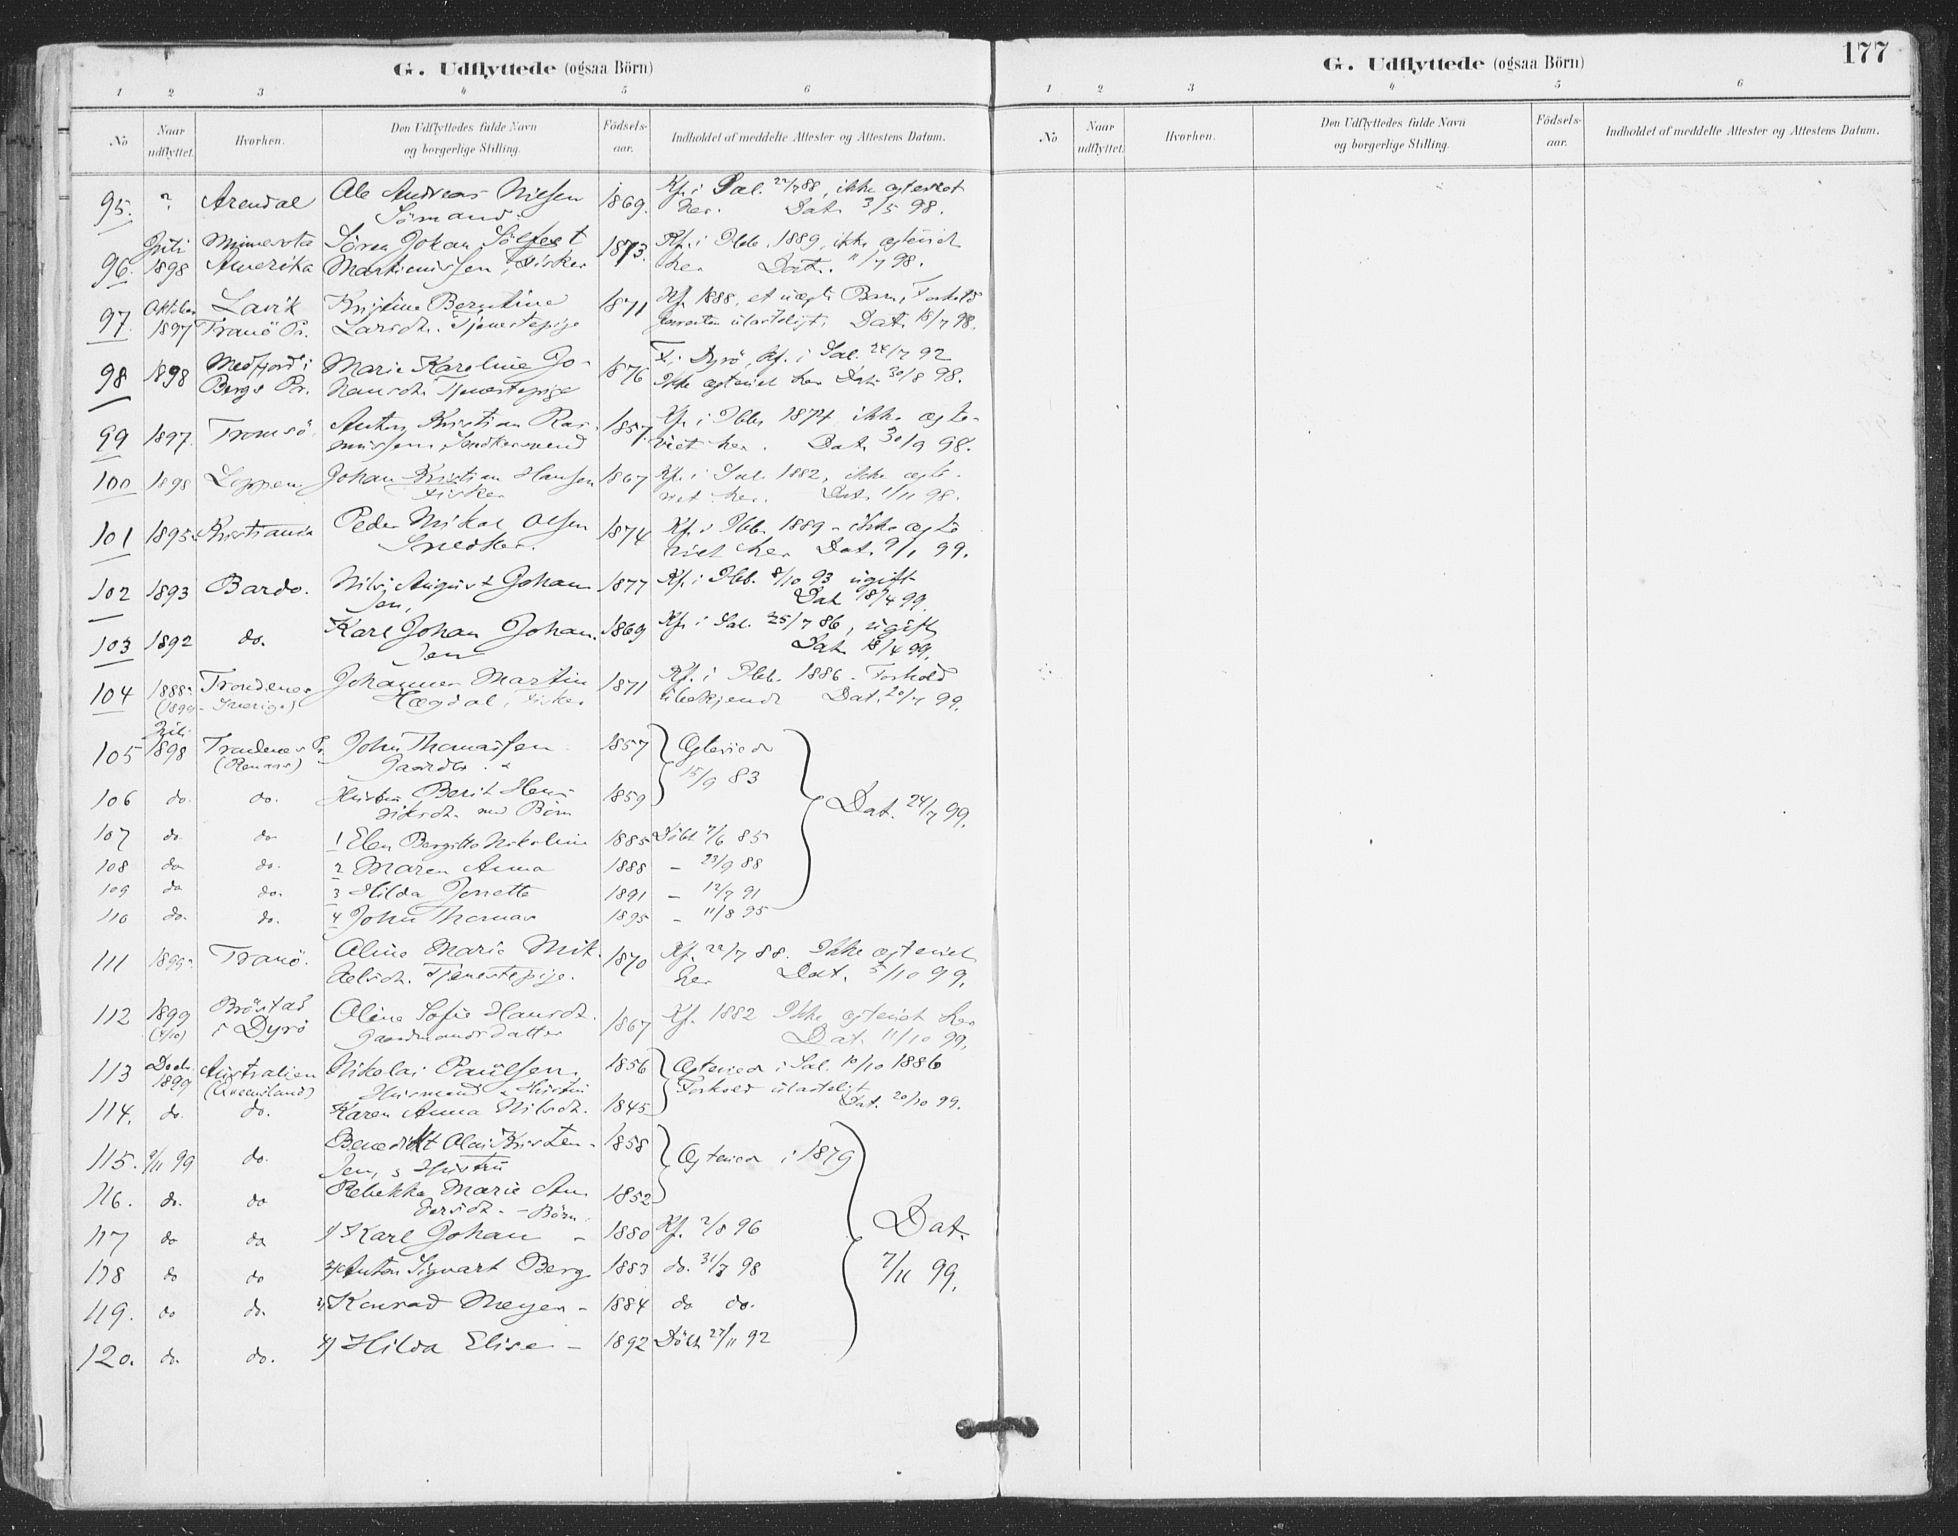 G. Udflyttede (ogsaa Börn)
1 2 3 4 5 6
No Naar udflyttet. Hvorhen. Den Udflyttedes fulde Navn og borgerlige Stilling. Födsels-aar. Indholdet af meddelte Attester og Attestens Datum.
95. ? Arendal Ole Andreas Nilsen 1869. Kf. i Sal. 22/7 88, ikke egteviet
Sömand. her. Dat. 3/5 98.
Juli Minnesota Sören Johan Sölfest 1873. Kf. i Ibb. 1889, ikke egteviet
96. 1898 Amerika Martinussen, Fisker her Dat. 11/7 98.
Oktober Lavik Kristine Berntine 1871 Kf. 1888, et uægte Barn, Forhold
97. 1897 Tranö Pr. Larsdt. Tjenestepige forresten ulasteligt. Dat. 18/7 98.
Medfjord i Marie Karoline Jo- F. i Dyrö, Kf. i Sal. 24/7 92
98 1898 Bergs Pr. hansdt. Tjenestepige 1876 Ikke egteviet her Dat. 30/8 98.
99 1897. Tromsö. Anton Kristian Ras- 1857. Kf. i Ibb. 1874 ikke egte-
mussen, Snedkersvend viet her. Dat. 30/9 98.
100 1898 Loppen. Johan Kristian Hansen 1867 Kf. i Sal. 1882, ikke egte-
Fisker viet her. Dat. 1/11 98.
101 1895. Kristiania Peder Mikal Olsen 1874 Kf. i Ibb. 1889 - ikke egte
Snedker. viet her Dat. 9/1 99.
102 1893 Bardo. Nils August Johan- 1877 Kf. i Ibb. 8/10 93 ugift
sen, Dat. 18/4 99.
103 1892 do. Karl Johan Johan- 1869 Kf. i Sal. 25/7 86, ugift
sen Dat. 18/4 99.
104 1888. Trondenes Johannes Martin 1871 Kf. i Ibb. 1886 - Forhold
(1899 - Sverige) Hægdal, Fisker ubekjendt Dat. 20/4 99.
Juli
105 1898 Trondenes Pr. John Thomassen 1857 Egteviede
Gaardbr. 15/9 83
106 do. do. Hustru Berit Hen- 1859 Dat. 24/7 99.
riksdt. med Börn
107 do do 1 Elen Bergitte Nikoline 1885 Döbt 7/6 85
108 do do. 2 Maren Anna 1888 - 23/9 88
109 do do. 3 Hilda Jenette 1891 - 12/7 91
110 do. do. 4 John Thomas 1895 - 11/8 95
111 1899. Tranö. Oline Marie Mik- 1870 Kf. 22/7 88. Ikke egteviet
kelsdt. Tjenestepige. her Dat. 5/10 99.
112 1899 Bröstad Oline Sofie Hansdt. 1867 Kf. 1882 Ikke egteviet her
i Dyrö Gaardmandsdatter Dat. 11/10 99.
113 Decbr. 1899 Australien Nikolai Paulsen. 1856 Egteviede i Sal. 10/10 1886
(Queensland) Husmand Hustru Forhold ulasteligt
114. do. do. Karen Anna Nilsdt. 1845 Dat. 20/10 99.
115. 9/11 99 do. Benedikt Olai Kristen- 1858 Egteviede i 1879
sen, s Hustru
116. do. do Rebekka Marie An- 1852
dersdt. - Börn.
117 do do 1) Karl Johan - 1880 Kf. 2/8 96 Dat.
118 do do 2) Anton Sigvart Berg 1883 do. 31/7 98 7/11 99.
119. do do. 3) Konrad Meyer - 1884 do do.
120. do. do. 4) Hilda Elise - 1892 Döbt 27/11 92
177
G. Udflyttede (ogsaa Börn)
1 2 3 4 5 6
No Naar udflyttet. Hvorhen. Den Udflyttedes fulde Navn og borgerlige Stilling. Födsels-aar. Indholdet af meddelte Attester og Attestens Datum.